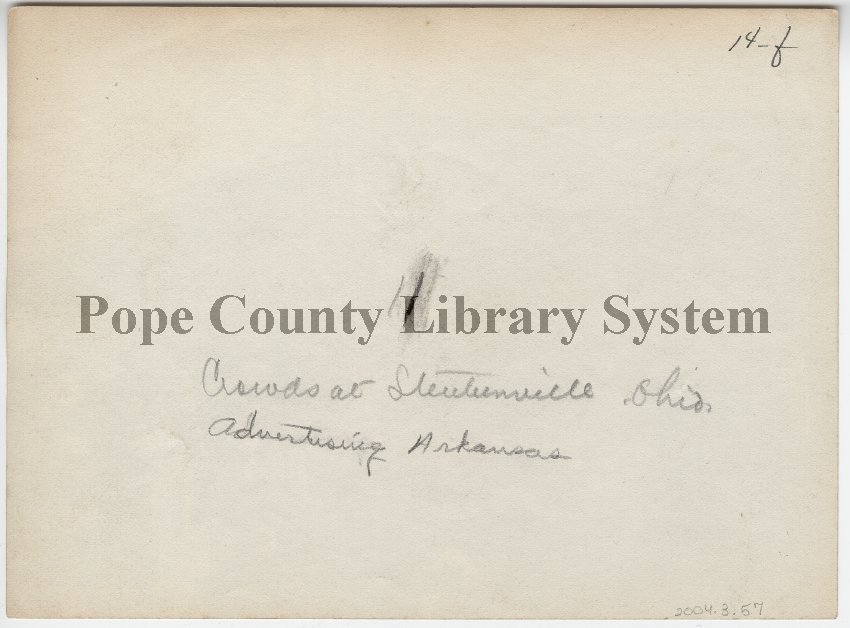 14-f
Pope County Library System
Crowds at Steubenville Ohio.
Advertising Arkansas
2004.3.57